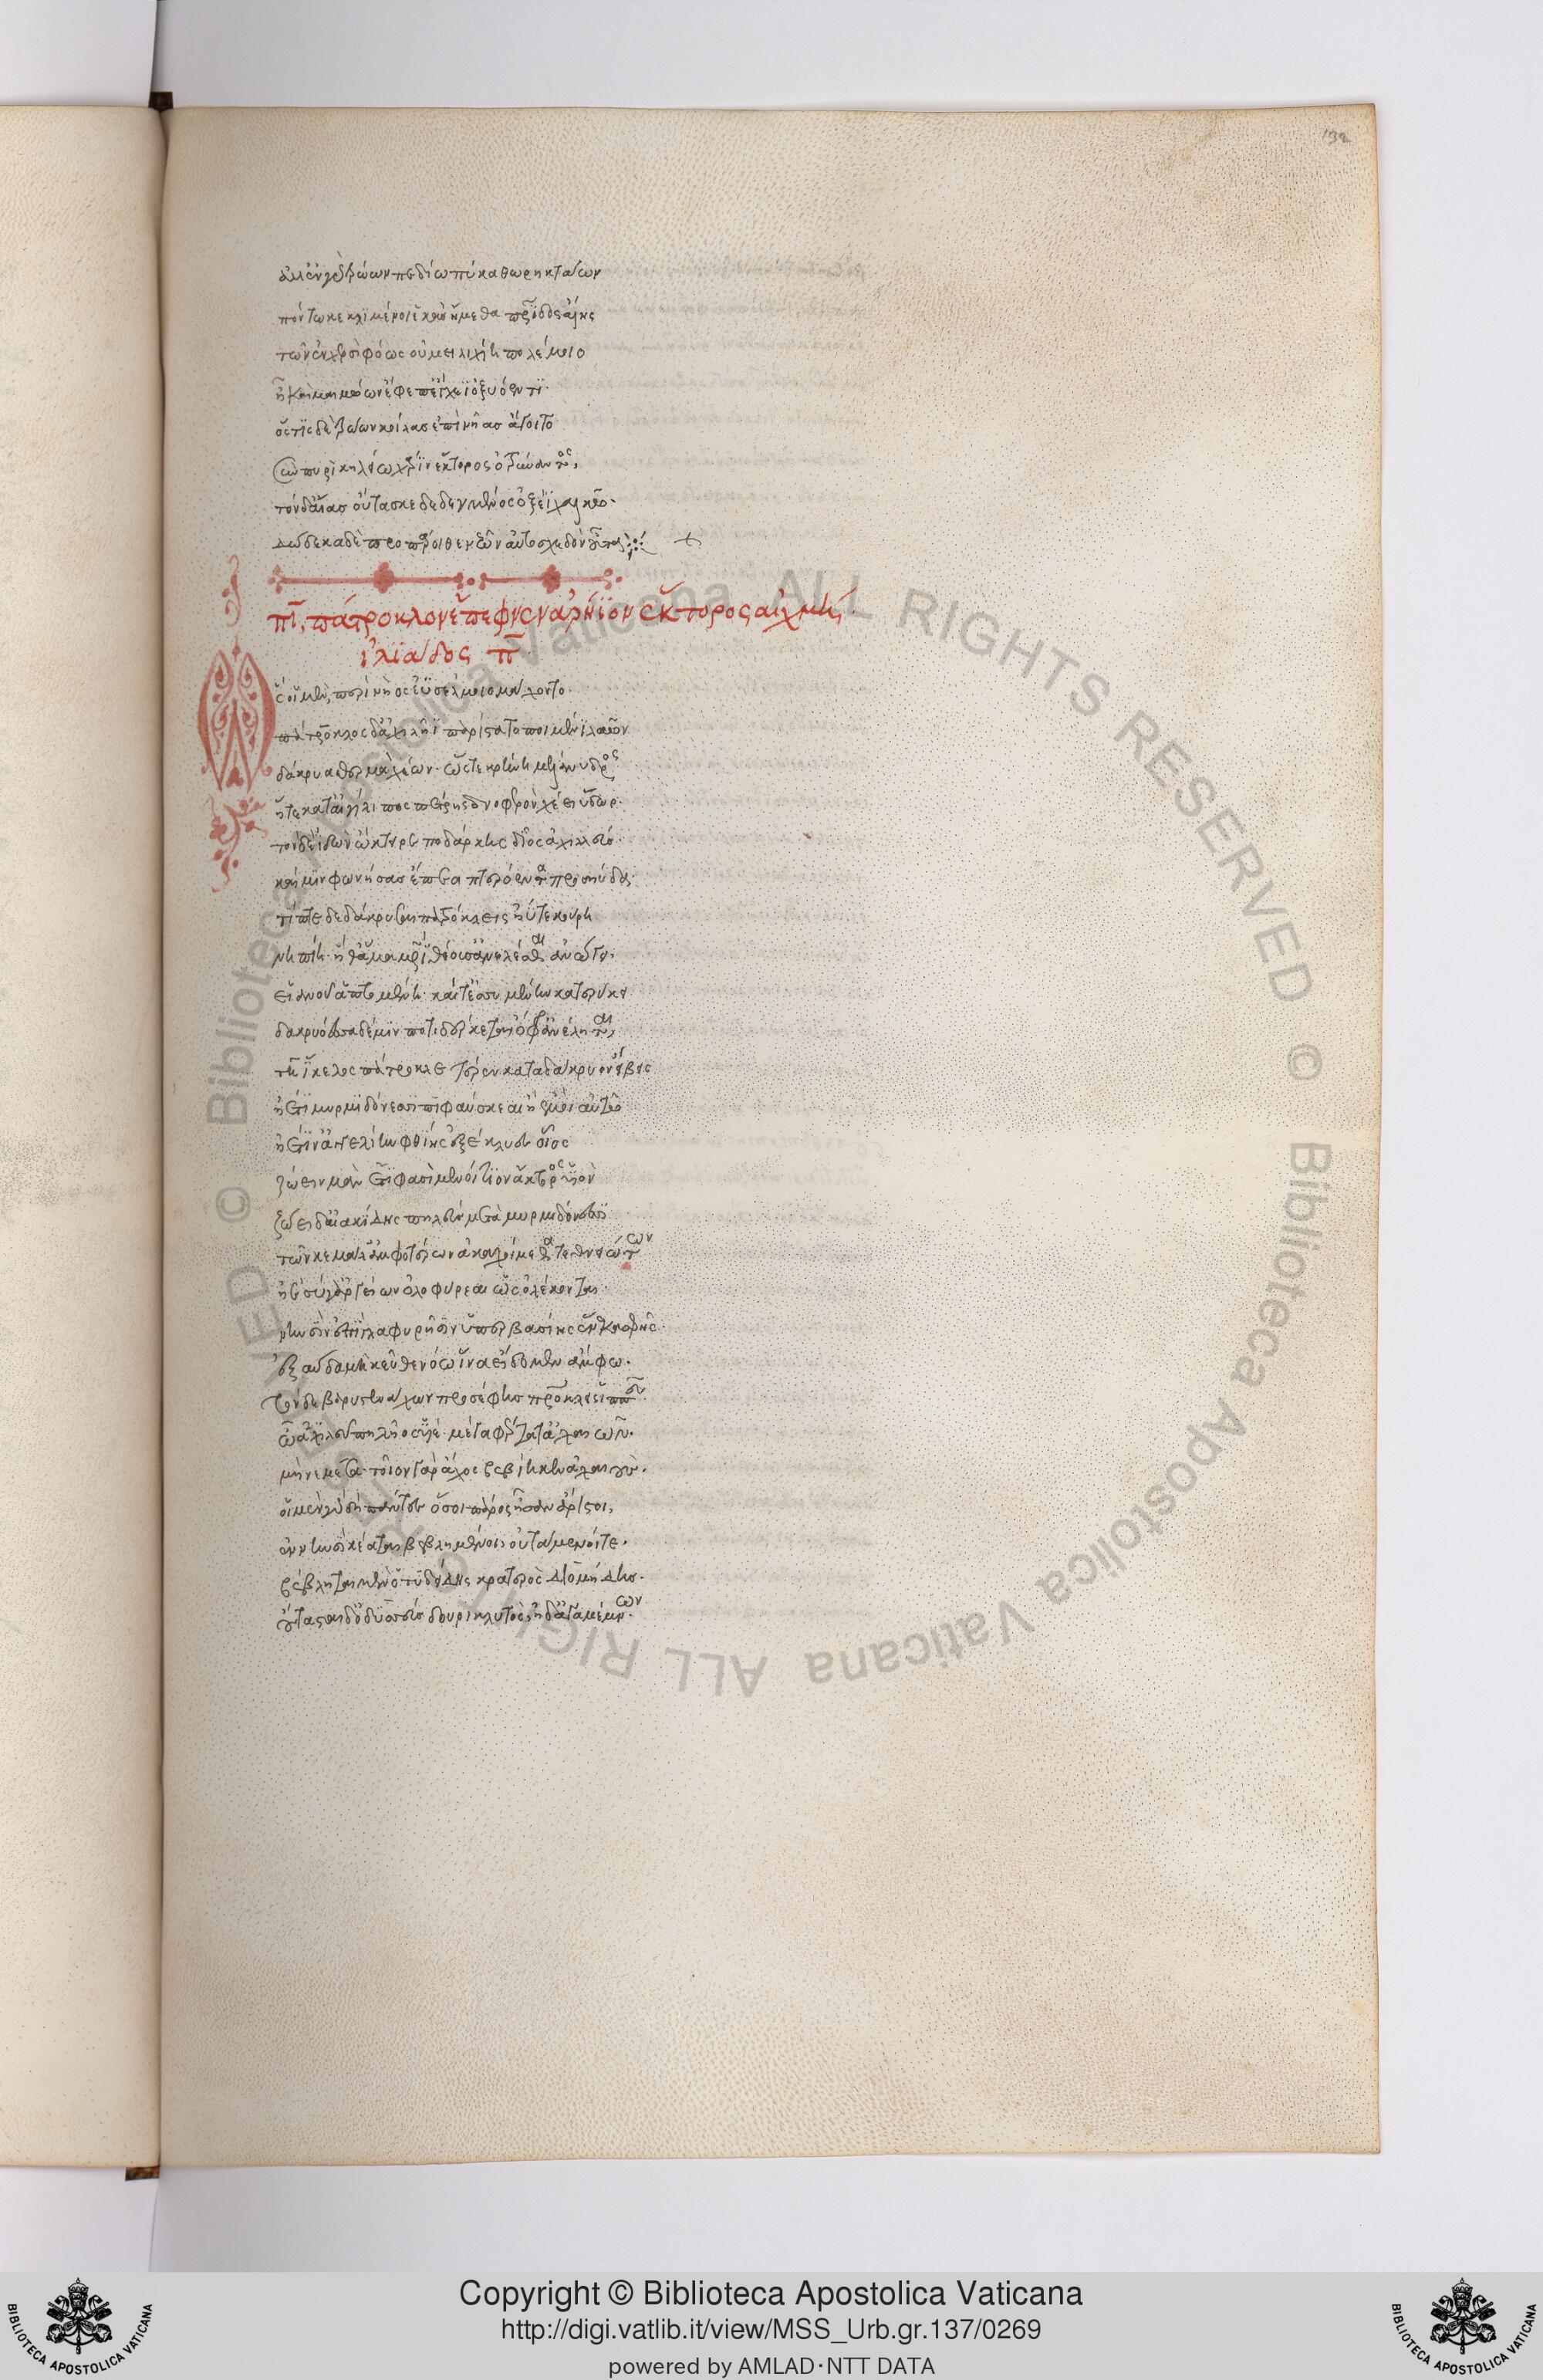 132
ἀλλ' ἐν γὰρ Τρώων πεδίω πύκα θωρηκτάων
πόντω κεκλιμένοι ἑκὰς ἥμεθα πατρίδος αἴης
τῶ ἐν χερσὶ φόως οὐ μειλιχίη πολέμοιο
ἦ καὶ μαιμώων ἔφεπ' ἔγχεϊ ὀξυόεντι.
ὅστις δὲ Τρώων κοίλης ἐπὶ νηυσὶ φέροιτο
σὺν πυρὶ κηλέω χάριν Ἕκτορος ὀτρύναντος,
τὸν δ' Αἴας οὔτασκε δεδεγμένος ἔγχεϊ μακρῷ.
δώδεκα δὲ προπάροιθε νεῶν αὐτοσχεδὸν οὖτα
πῖ, πάτροκλον ἔπεφνεν ἀρήϊον ἕκτορος αἰχμή.
ἰλιάδος π
Ὣς οἱ μὲν περὶ νηὸς ἐϋσσέλμοιο μάχοντο.
πάτροκλος δ' ἀχιλῆϊ παρίστατο ποιμένι λαῶν
δάκρυα θερμὰ χέων. ὥστε κρήνη μελάνυδρος
ἥτε κατ' αἰγίλιπος πέτρης δνοφερὸν χέει ὕδωρ.
τὸν δὲ ἰδὼν ὤκτειρε ποδάρκης δῖος ἀχιλλεύς.
καί μιν φωνήσας ἔπεα πτερόεντα προσηύδα
τίπτε δεδάκρυσαι πατρόκλεις ἠύτε κούρη
νηπίη. ἥ θ' ἅμα μητρὶ θέουσ' ἀνελέσθαι ἀνώγει.
εἱανοῦ ἁπτομένη. καί τ' ἐσσυμένην κατερύκει
δακρυόεσσα δέ μιν ποτιδέρκεται ὄφρ' ἀνέληται,
τῆ ἴκελος πάτροκλε τέρεν κατὰ δάκρυον εἴβεις
ἠέ τι μυρμιδόνεσσι πιφαύσκεαι ἢ ἐμοὶ αὐτῷ
ἠέ τιν' ἀγγελίην φθίης ἐξέκλυες οἶος
ζώειν μὰν ἔτι φασὶ μενοίτιον ἄκτορος υἱὸν
ζώει δ' αἰακίδης πηλεὺς μετὰ μυρμιδόνεσσι
τῶν κε μάλ' ἀμφοτέρων ἀκαχοίμεθα τεθνειώτων
ἠὲ σύ γ' ἀργείων ὀλοφύρεαι ὡς ὀλέκονται
νηυσὶν ἔπι γλαφυρῆσιν ὑπερβασίης ἕνεκα σφῆς.
ἐξαύδα μὴ κεῦθε νόω ἵνα εἴδομεν ἄμφω.
τὸν δὲ βαρυστενάχων προσέφης πατρόκλεις ἱππεῦ
ὦ ἀχιλεῦ πηλῆος υἱὲ μέγα φέρτατ' ἀχαιῶν.
μὴ νεμέσα. τοῖον γὰρ ἄχος βεβίηκεν ἀχαιούς.
οἱ μὲν γὰρ δὴ πάντες ὅσοι πάρος ἦσαν ἄριστοι,
ἐν νηυσὶ κέαται βεβλημένοι οὐτάμενοί τε.
βέβληται μὲν ὁ τυδείδης κρατερὸς διομήδης.
οὔτασται δ' ὀδυσσεὺς δουρικλυτὸς ἠδ' ἀγαμέμνων.
Copyright © Biblioteca Apostolica Vaticana
http://digi.vatlib.it/view/MSS_Urb.gr.137/0269
powered by AMLAD·NTT DATA